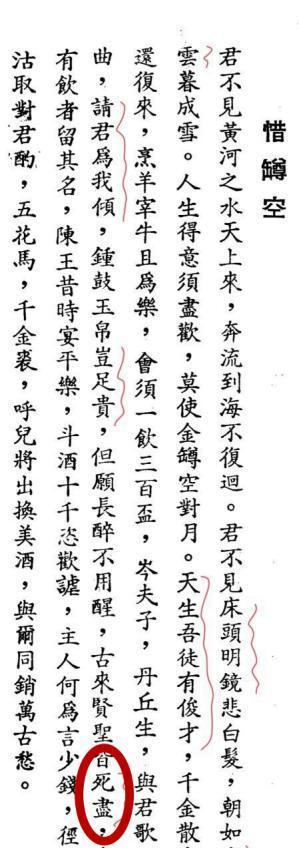 惜罇空
君不見黃河之水天上來，奔流到海不復迴。君不見床頭明鏡悲白髮，朝如
雲暮成雪。人生得意須盡歡，莫使金罇空對月。天生吾徒有俊才，千金散
還復來，烹羊宰牛且爲樂，會須一飲三百盃，岑夫子，丹丘生，與君歌
曲，請君爲我傾，鍾鼓玉帛豈足貴，但願長醉不用醒，古來賢聖皆死盡，
有飲者留其名，陳王昔時宴平樂，斗酒十千恣歡謔，主人何爲言少錢，徑
沽取對君酌，五花馬，千金裘，呼兒將出換美酒，與爾同銷萬古愁。